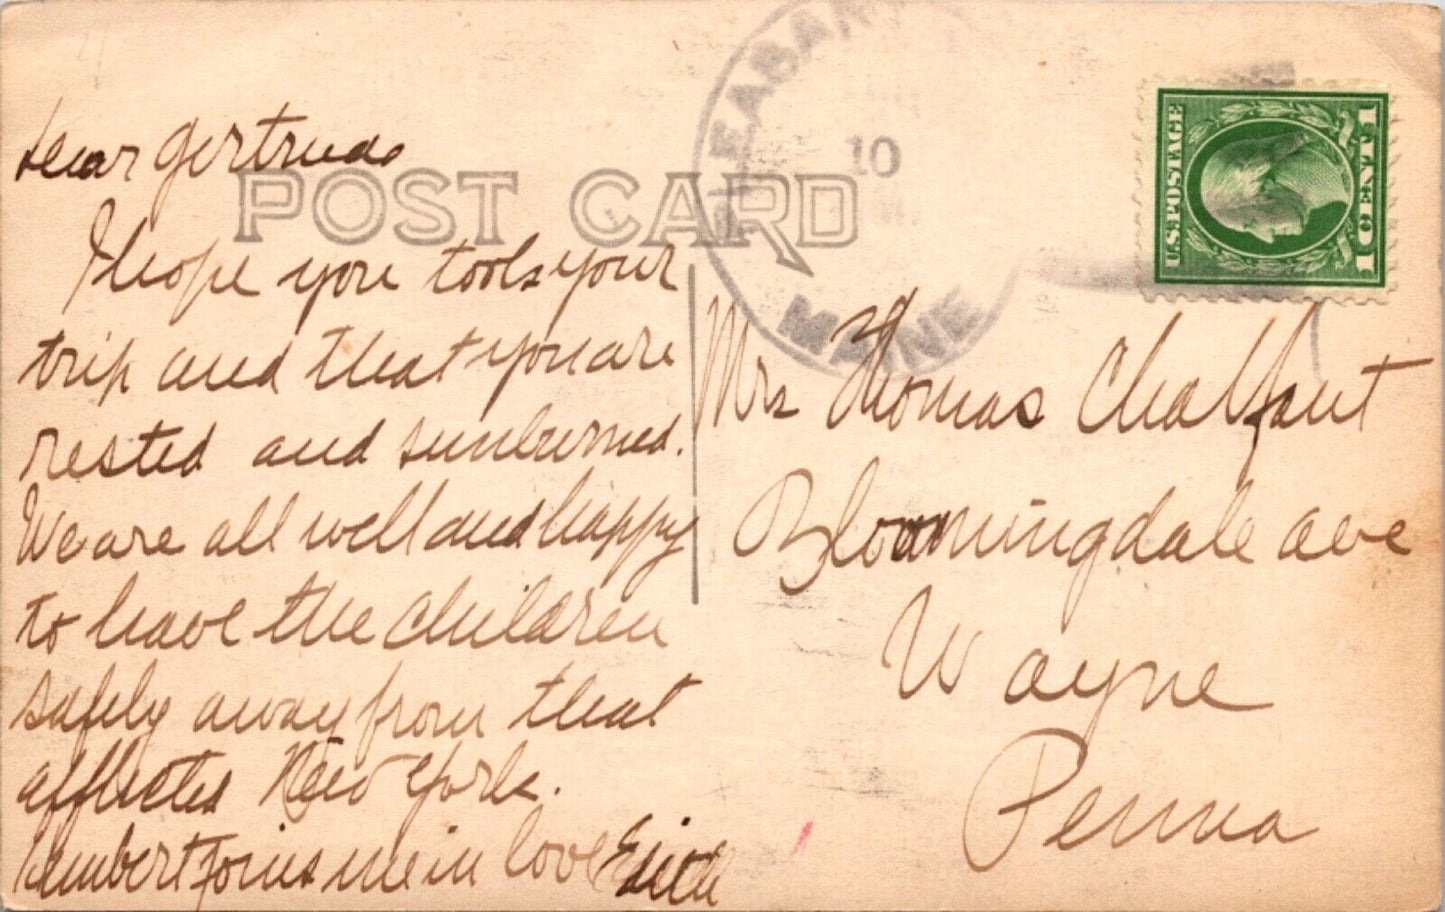 Dear Gertrude
POST CARD
I hope you took your
trip and that you are
rested and sunburned.
We are all well and happy
to have the children
safely away from that
afflicted New York.
Lambert joins me in love Edith
10
MAINE
U.S. POSTAGE
1 CENT 1
Mrs Thomas Chalfant
Bloomingdale ave
Wayne
Penna